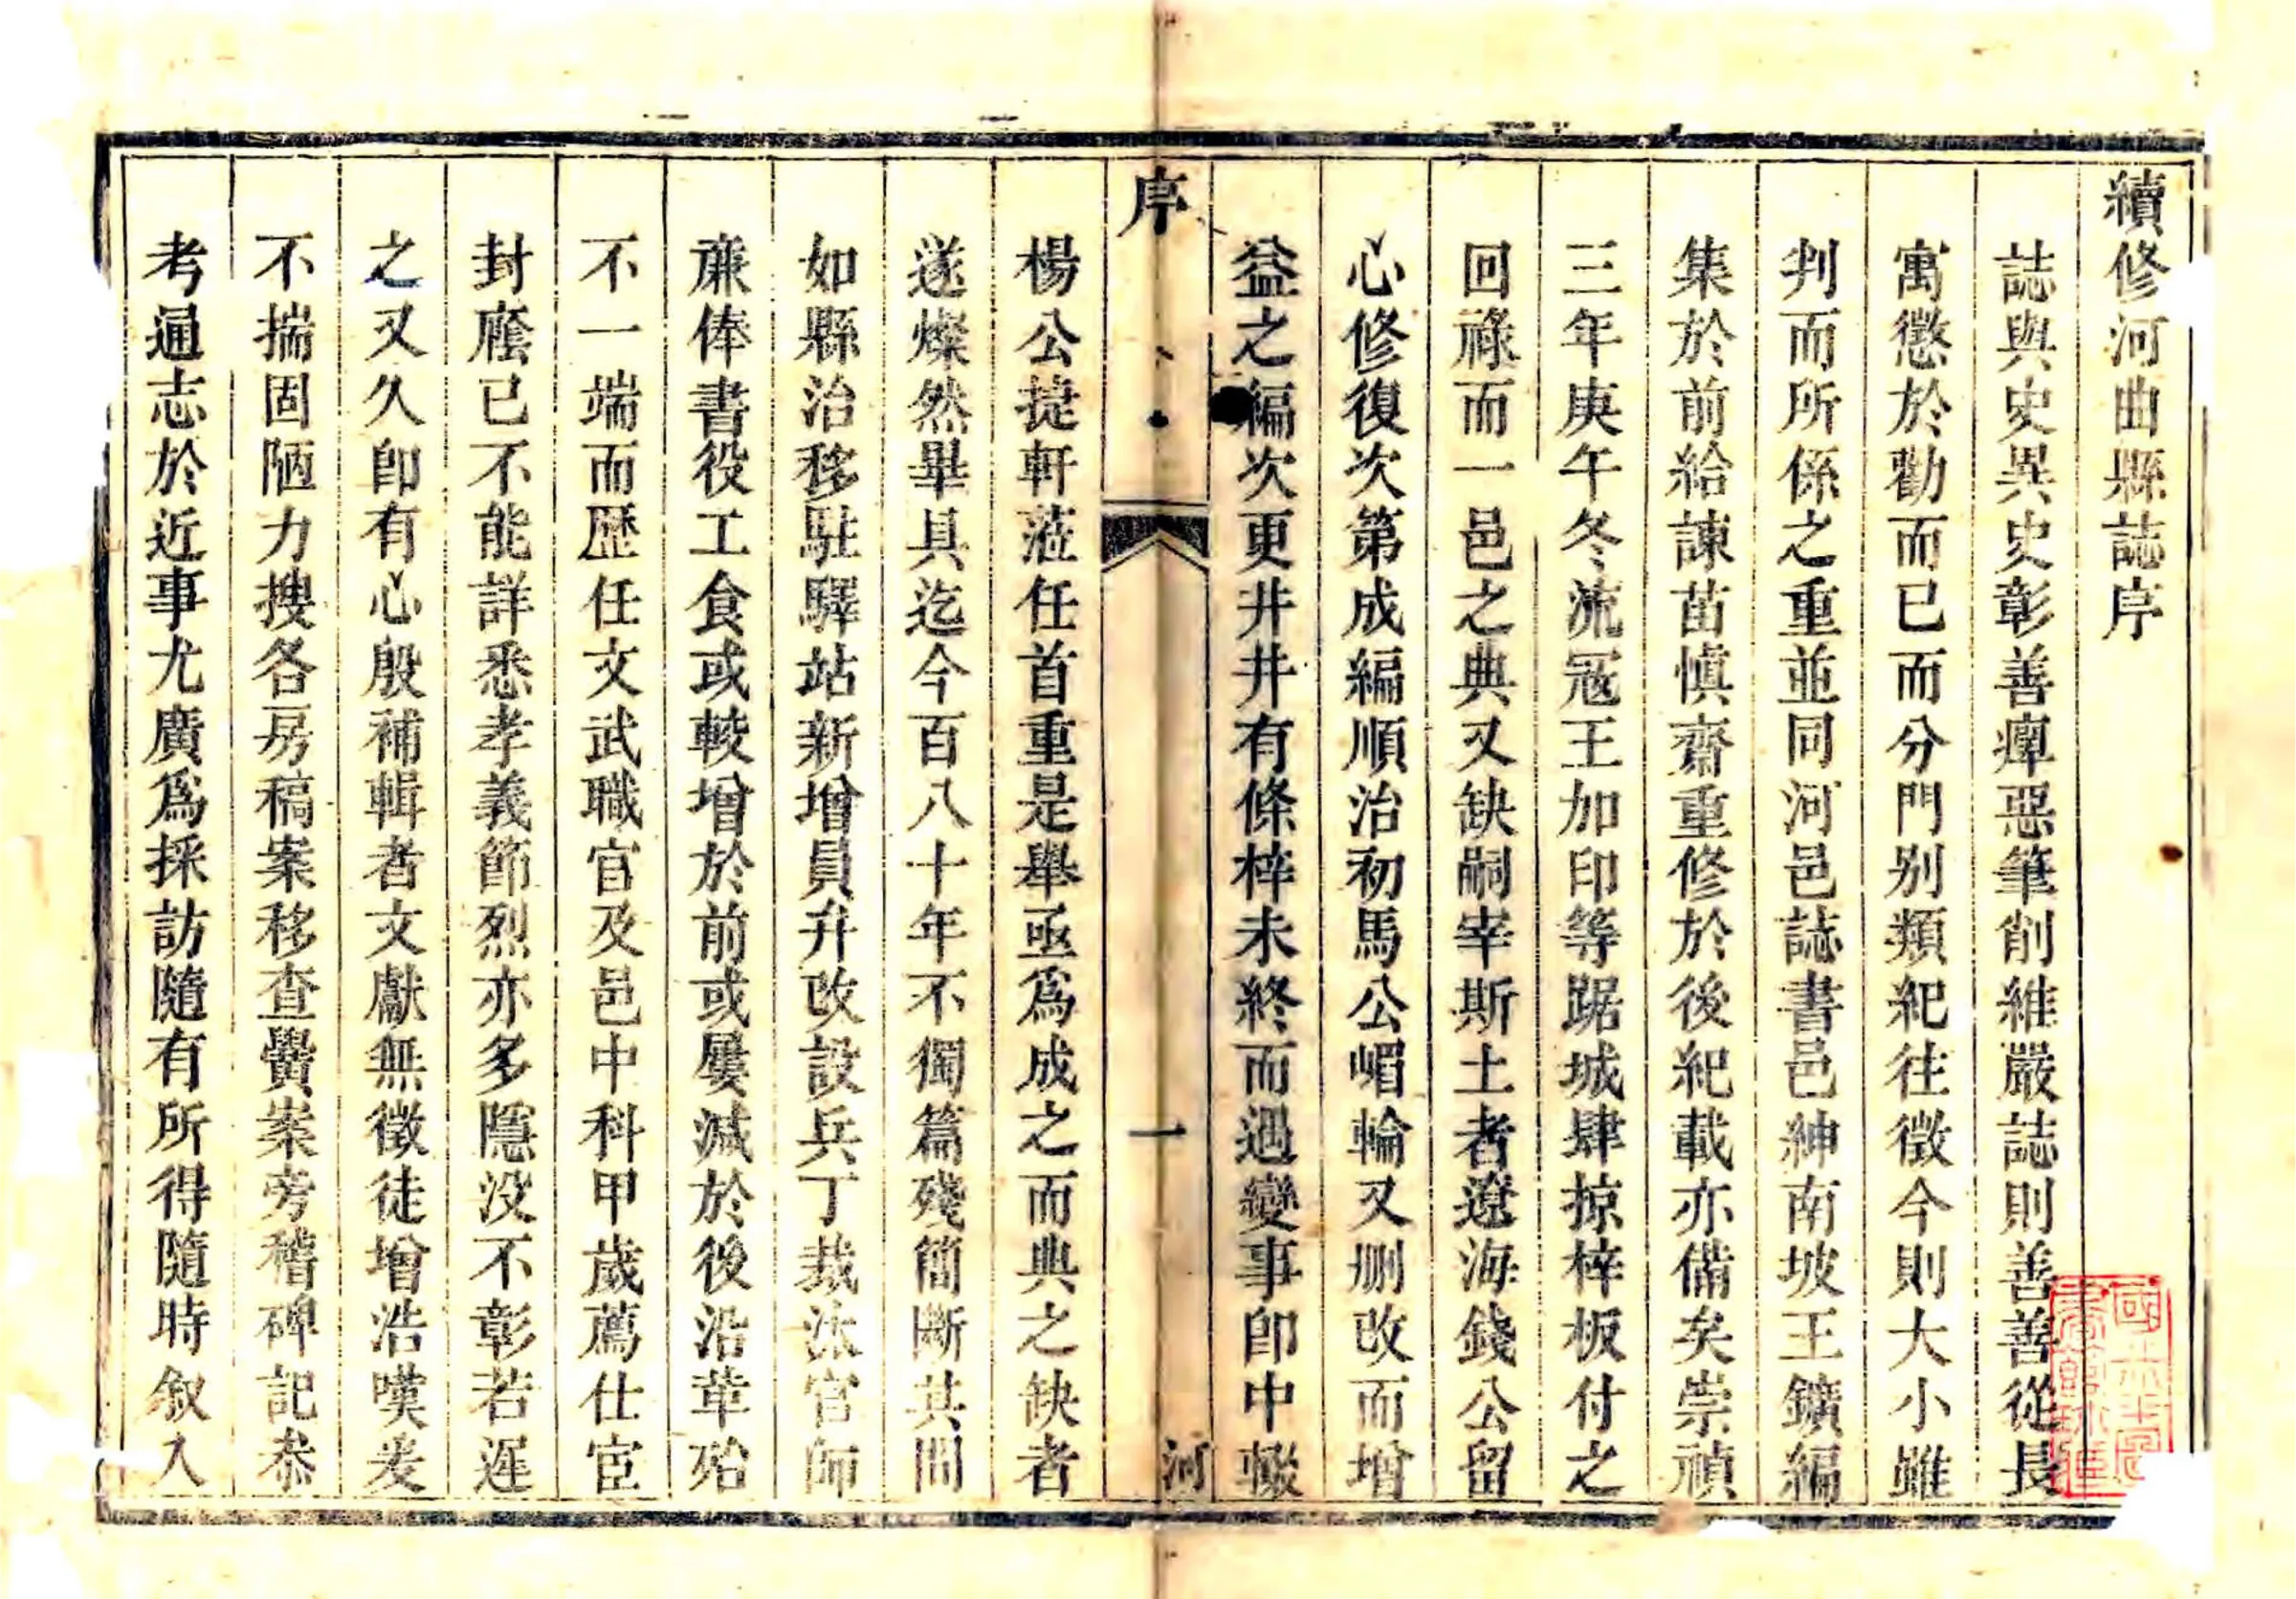 續修河曲縣誌序
誌與史異史彰善癉惡筆削維嚴誌則善善從長
寓懲於勸而已而分門别類紀往徵今則大小雖
判而所係之重並同河邑誌書邑紳南坡王鑛編
集於前給諫苗慎齋重修於後紀載亦備矣崇禎
三年庚午冬流寇王加印等踞城肆掠梓板付之
回祿而一邑之典又缺嗣宰斯土者遼海錢公留
心修復次第成編順治初馬公嵋輪又刪改而增
益之編次更井井有條梓未終而遇變事即中輟
序
一
河
楊公㨗軒蒞任首重是舉亟爲成之而典之缺者
遂燦然畢具迄今百八十年不獨篇殘簡斷其間
如縣治移駐驛站新增員弁改設兵丁裁汰官師
亷俸書役工食或較增於前或屢減於後沿革殆
不一端而歷任文武職官及邑中科甲歲薦仕宦
封廕已不能詳悉孝義節烈亦多隱没不彰若遲
之又久即有心殷補輯者文獻無徵徒增浩嘆爰
不揣固陋力搜各房稿案移查黌案旁稽碑記叅
考通志於近事尤廣爲採訪隨有所得隨時叙入